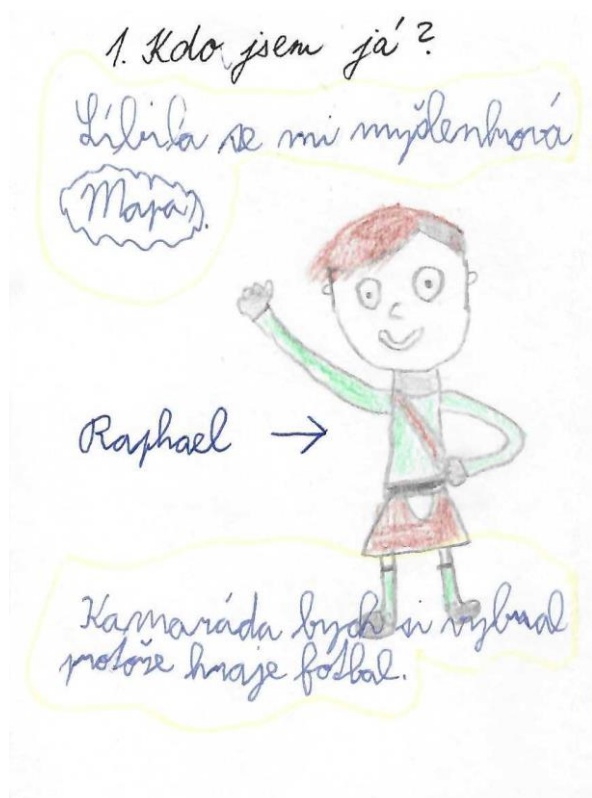 1. Kdo jsem já?
Líbila se mi myšlenková
Mapa.
Raphael →
Kamaráda bych si vybral
protože hraje fotbal.